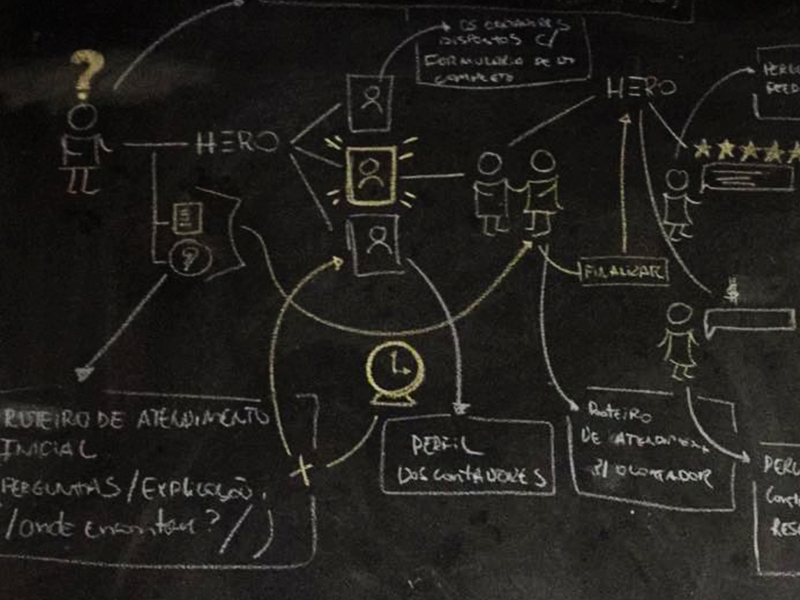 OS CONTADORES
DISPOSTOS C/
FORMULÁRIO
COMPLETO
?
HERO
HERO
?
FINALIZAR
$
ROTEIRO DE ATENDIMENTO
INICIAL
PERGUNTAS/EXPLICAÇÃO,
/onde encontrar?/
+
PERFIL
DOS CONTADORES
ROTEIRO
DE ATENDIMENTO
P/ O CONTADOR